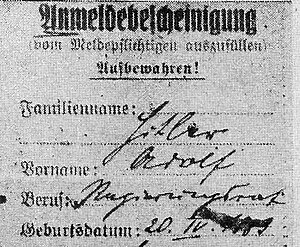 Anmeldebescheinigung
(vom Meldepflichtigen auszufüllen)
Aufbewahren!
Familienname: Hitler
Vorname: Adolf
Beruf: Regierungsrat
Geburtsdatum: 20. IV.